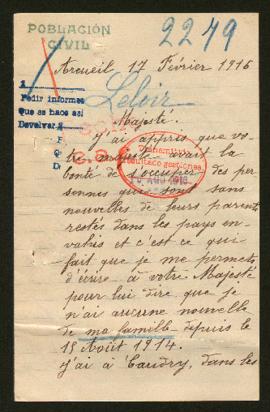 POBLACIÓN
CIVIL
2279
Arcueil 17 Février 1916
Leloir
Pedir informes
Que se hace así
Devolver
Majesté.
J'ai appris que vo-
tre majesté avait la
bonté de s'occuper des per-
sonnes qui sont sans
nouvelles de leurs parents
restés dans les pays en-
vahis et c'est ce qui
fait que je me permets
d'écrire à votre Majesté
pour lui dire que je
n'ai aucune nouvelle
de ma famille depuis le
15 Août 1914.
J'ai à Caudry, dans les